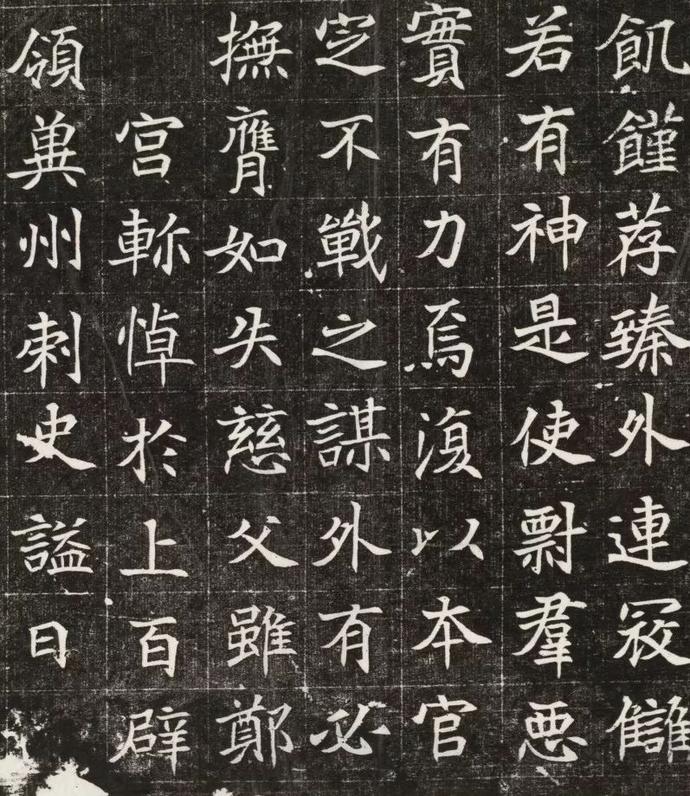 飢饉荐臻外連寇讎
若有神是使剽羣惡
實有力焉復以本官
定不戰之謀外有必
撫膺如失慈父雖鄭
宮斬悼於上百辟
領冀州刺史謚曰